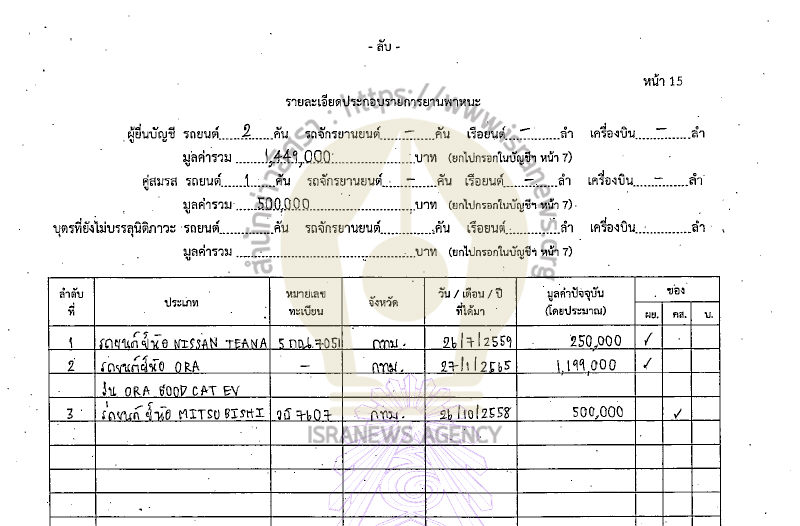 - ลับ -
หน้า 15
รายละเอียดประกอบรายการยานพาหนะ
ผู้ยื่นบัญชี รถยนต์ 2 คัน รถจักรยานยนต์ - คัน เรือยนต์ - ลำ เครื่องบิน - ลำ
มูลค่ารวม 1,449,000 บาท (ยกไปกรอกในบัญชีฯ หน้า 7)
คู่สมรส รถยนต์ 1 คัน รถจักรยานยนต์ - คัน เรือยนต์ - ลำ เครื่องบิน - ลำ
มูลค่ารวม 500,000 บาท (ยกไปกรอกในบัญชีฯ หน้า 7)
บุตรที่ยังไม่บรรลุนิติภาวะ รถยนต์ คัน รถจักรยานยนต์ คัน เรือยนต์ ลำ เครื่องบิน ลำ
มูลค่ารวม บาท (ยกไปกรอกในบัญชีฯ หน้า 7)
ลำดับที่ ประเภท หมายเลขทะเบียน จังหวัด วัน / เดือน / ปี ที่ได้มา มูลค่าปัจจุบัน (โดยประมาณ) ของ
ผย. คส. บ.
1 รถยนต์ยี่ห้อ NISSAN TEANA กทม. 26/7/2559 250,000 ✓
2 รถยนต์ยี่ห้อ ORA - กทม. 27/1/2565 1,199,000 ✓
รุ่น ORA GOOD CAT EV
3 รถยนต์ ยี่ห้อ MITSUBISHI 7607 กทม. 26/10/2558 500,000 ✓
สำนักข่าวอิศรา : https://www.isranews.org
ISRANEWS AGENCY